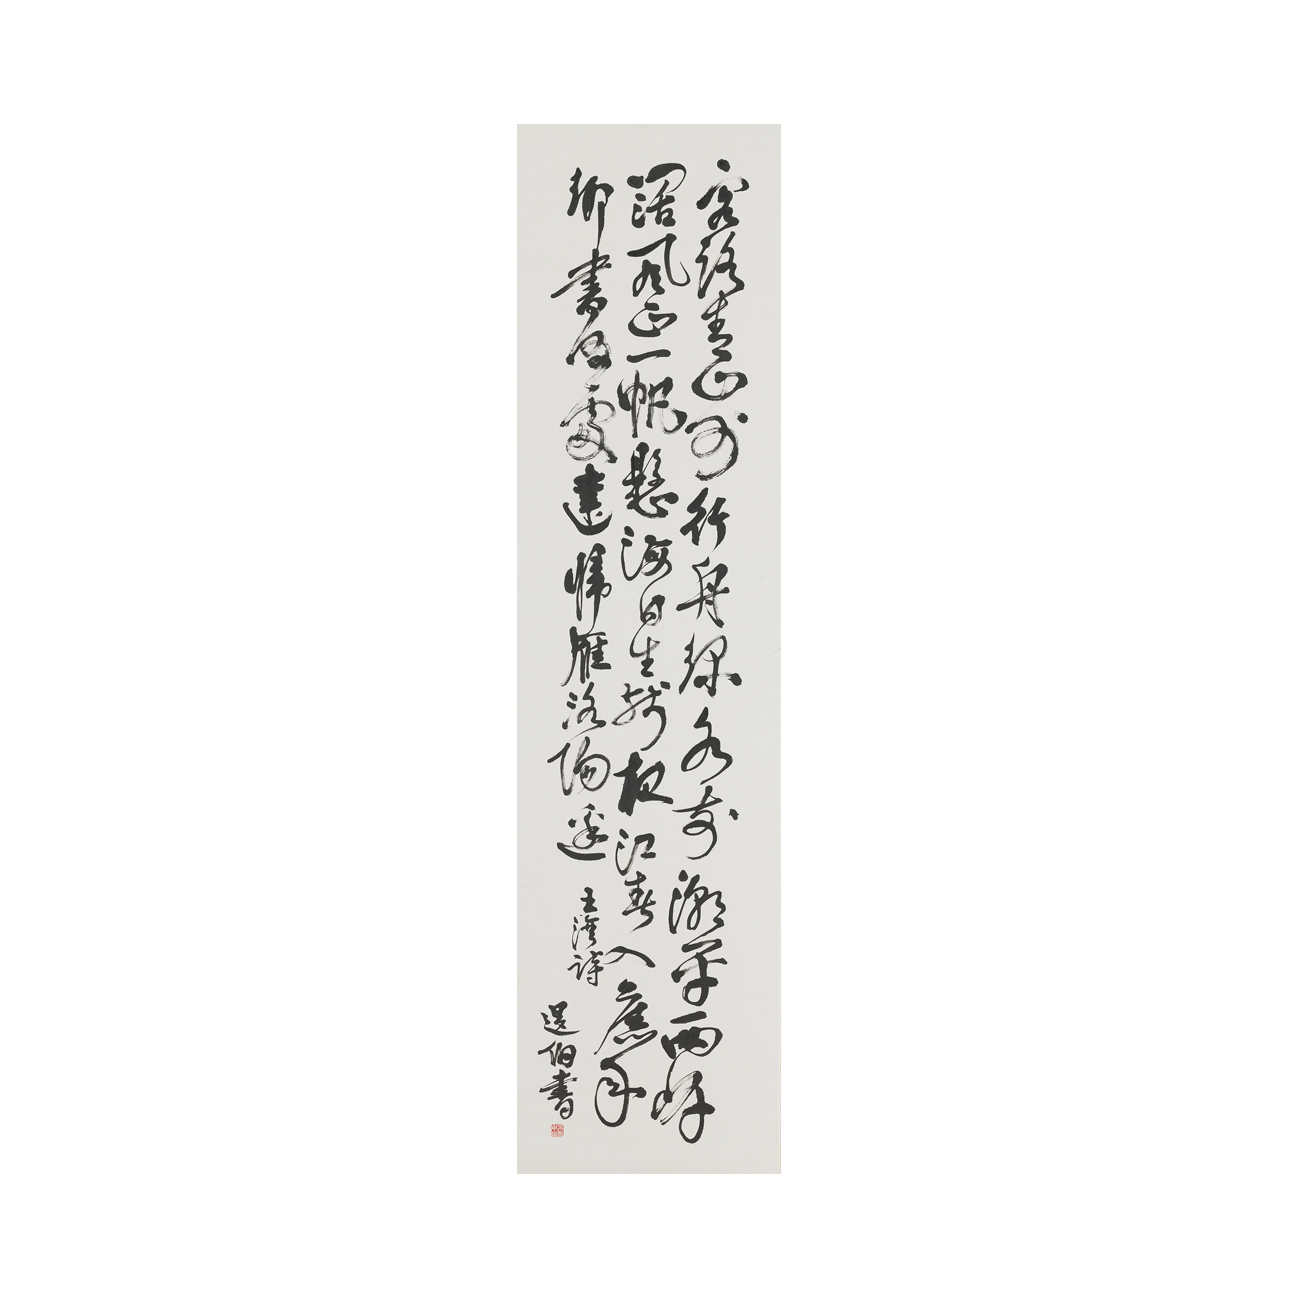 客路青山外行舟綠水前潮平兩岸
闊風正一帆懸海日生殘夜江春入舊年
鄉書何處達歸雁洛陽邊
王灣詩
伯書